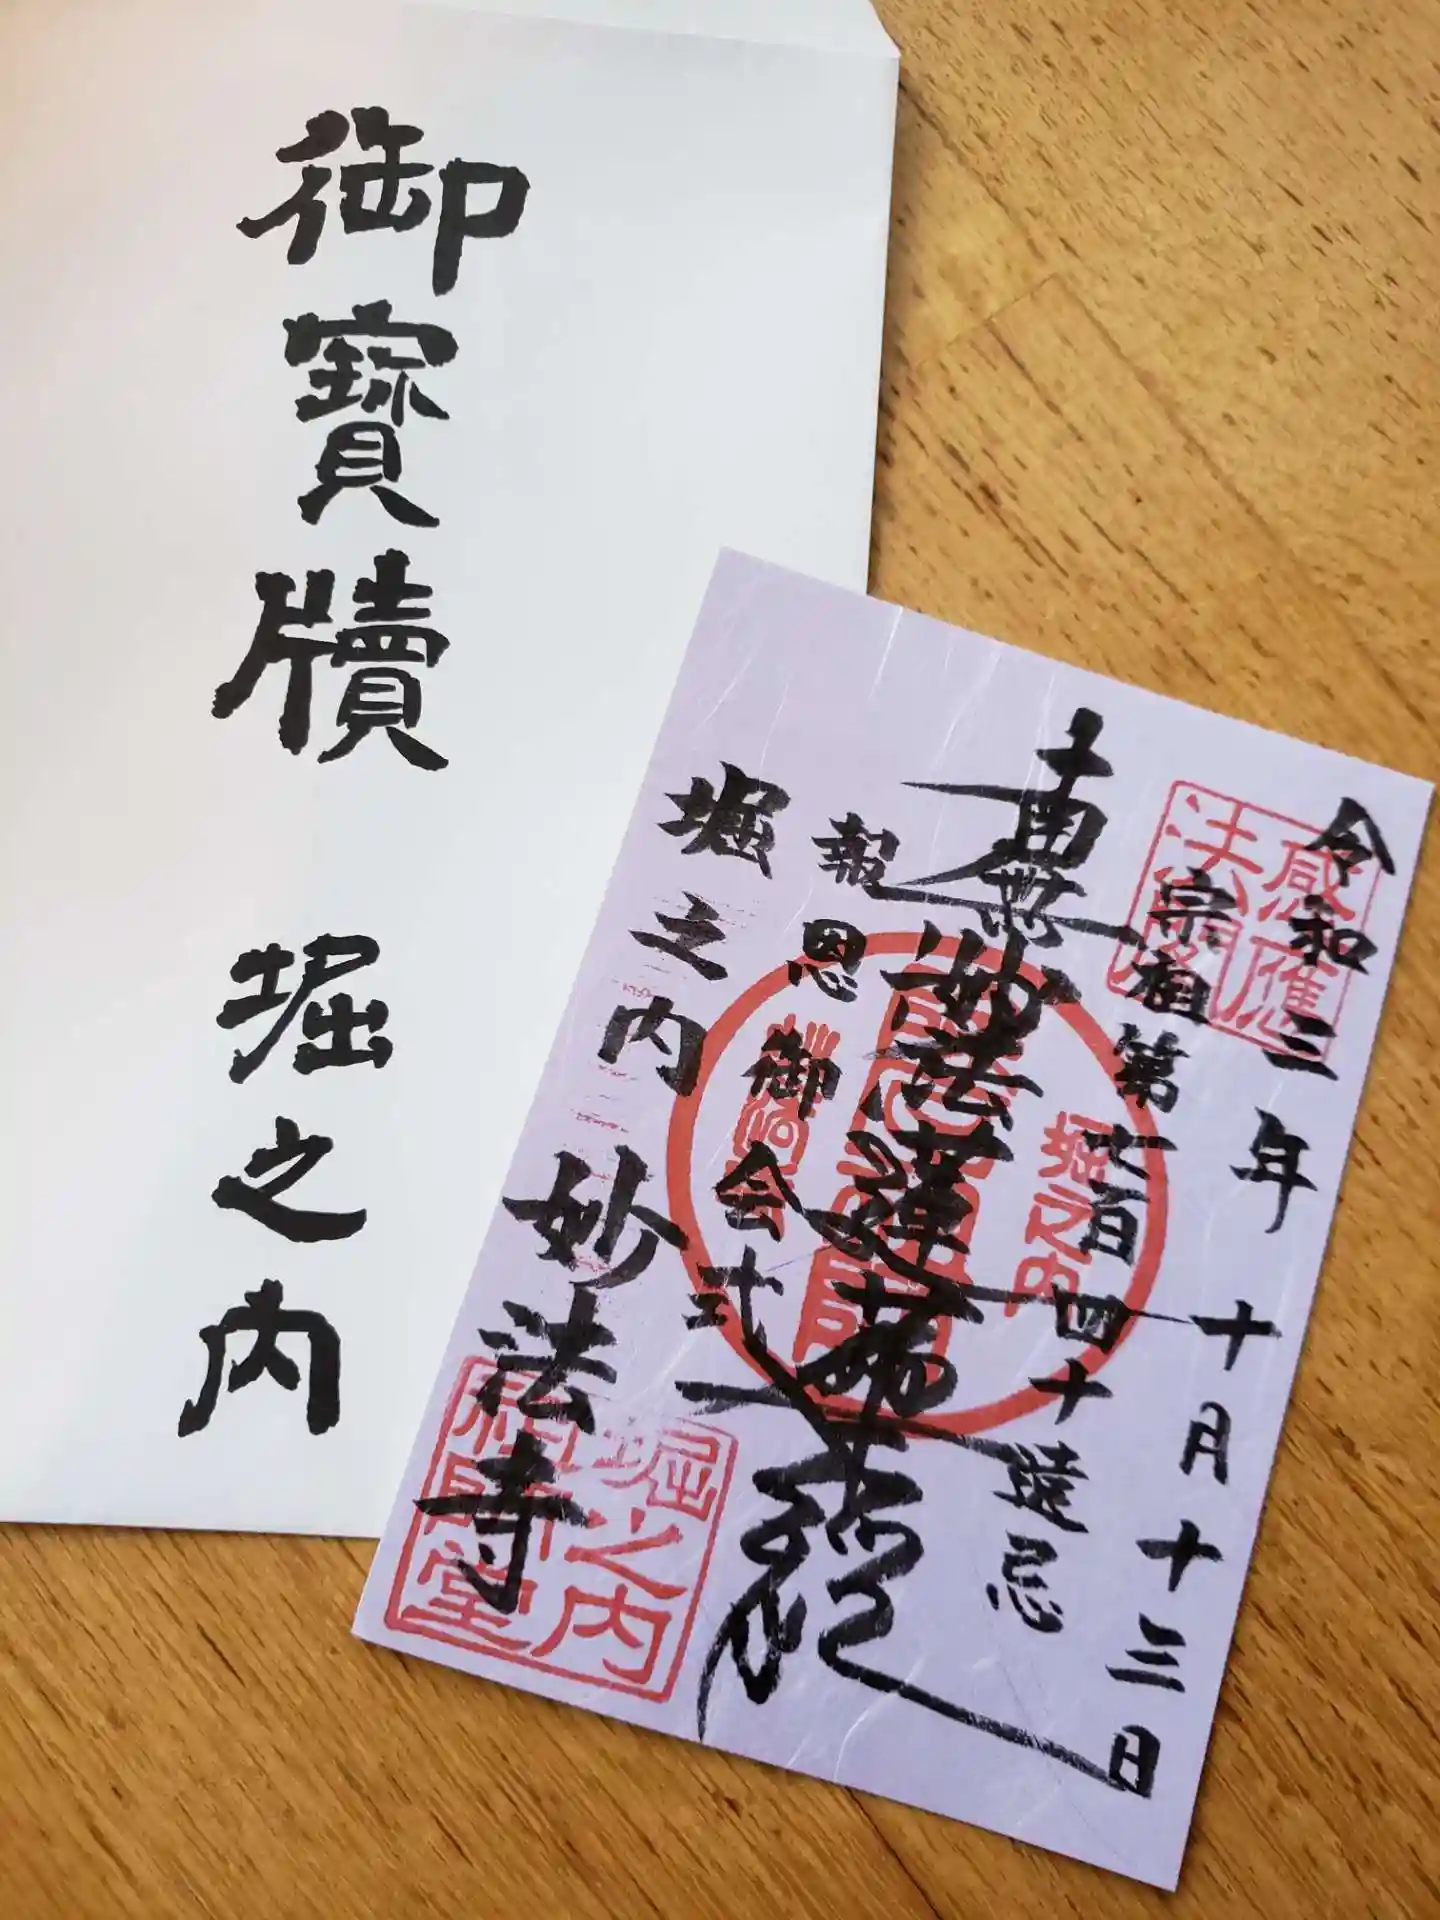 御寶牘 堀之内
令和三年十月十三日
宗祖第七百四十遠忌
南無妙法蓮華経
報恩御会式
堀之内 妙法寺
感應
法隆
堀之内
堀之内
祖師堂